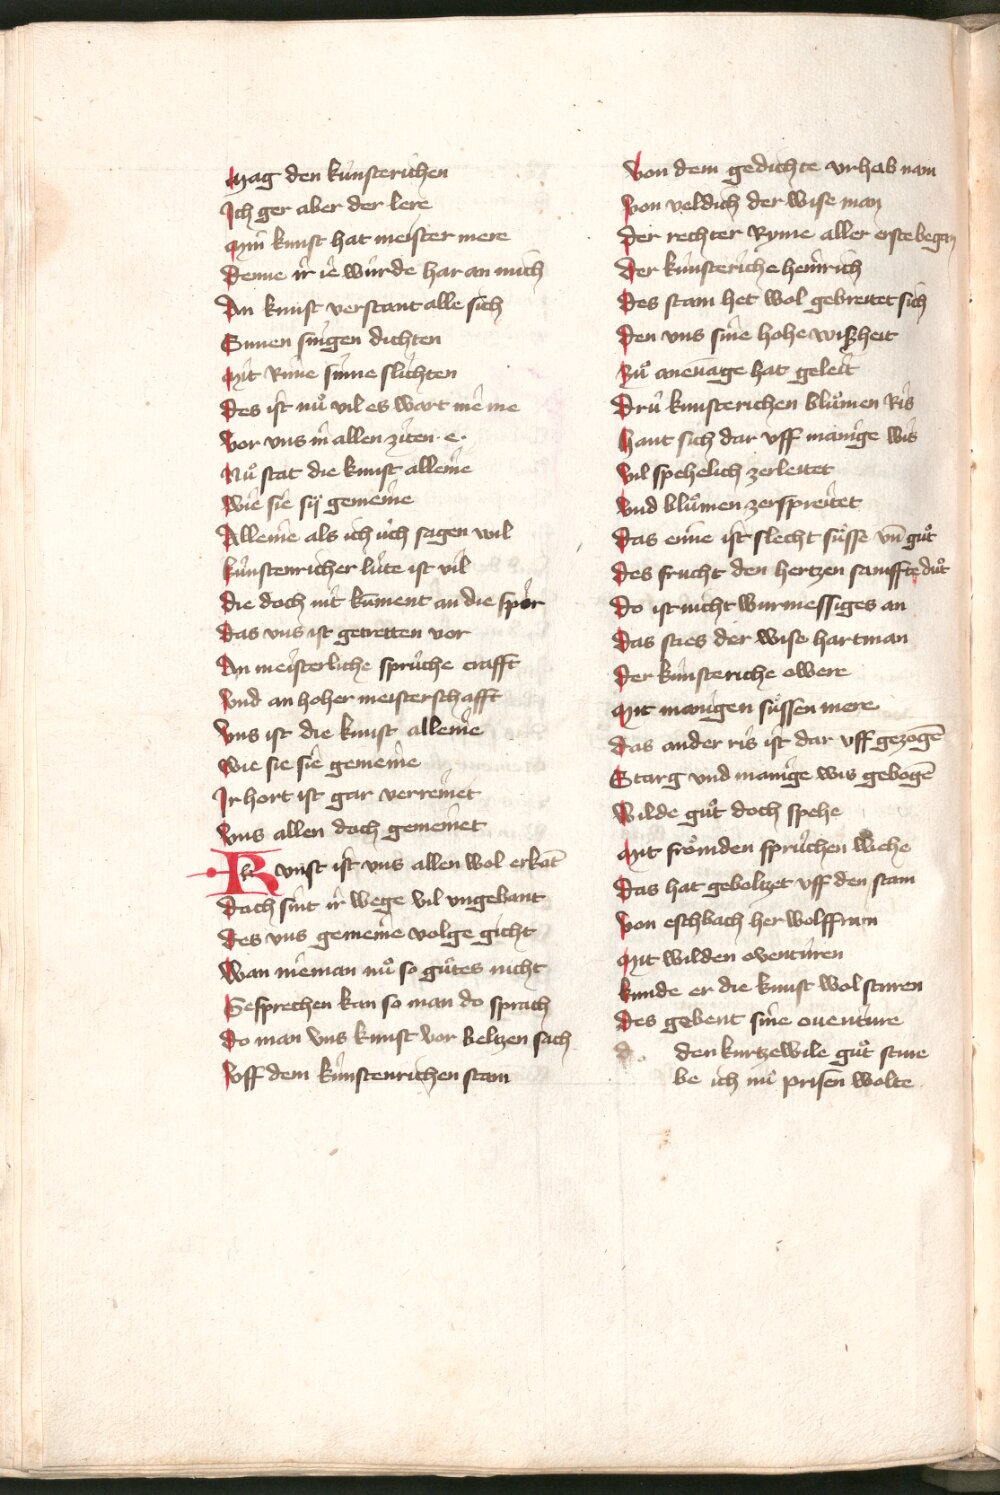 Mag den kúnsterichen
Ich ger aber der lere
Myn kunst hat meister mere
Denne ir ie wúrde har an mich
An kunst verstant alle sich
Sinnen singen dichten
Mit Rime sinne slichten
Des ist nuͦ vil es wart nie me
Vor vns in allen ziten · e ·
Nuͦ stat die kunst alleine
Wie sie sÿ gemeine
Alleine als ich úch sagen wil
kúnstenricher lúte ist vil
Die doch nit kūment an die spor
Das vns ist getretten vor
An meisterliche sprúche crafft
Vnd an hoher meisterschafft
Vns ist die kunst alleine
Wie sie sie gemeine
Ir hort ist gar verreinet
Vns allen doch gemeinet
Kunst ist vns allen wol erkāt
Doch sint ir wege vil vngebant
Des vns gemeine volge gicht
Wan nieman nuͦ so gútes nicht
Gesprechen kan so man do sprach
Do man vns kunst vor beltzen sach
Vff dem kúnstenrichen stam
Von dem gedichte vrhab nam
Von veldich der wise man
Der rechter Ryme aller erste began
Der kúnsteriche heinrich
Des stam het wol gebreitet sich
Den vns sine hohe wiszheit
Zuͦ anevage hat geleit
Drú kunsterichen bluͦmen Ris
Hant sich dar vff manige wis
Vil spehelich zerleitet
Vnd bluͦmen zerspreitet
Das eine ist slecht suͤsse vn̄ guͦt
Des frucht den hertzen sanffte duͦt
Do ist nicht wurmessiges an
Das sties der wise hartman
Der kúnsteriche owere
Mit manigen suͤssen mere
Das ander ris ist dar vff gezogē
Starg vnd manige wis gebogē
Wilde guͦt doch spehe
Mit froͤmden sprúchen wehe
Das hat gebeltzet vff den stam
Von eschbach her wolffram
Mit wilden oventúren
kunde er die kunst wol sturen
Des gebent sine ouentúre
den kurtzewile guͦt stúre
be ich nuͦ prisen wolte